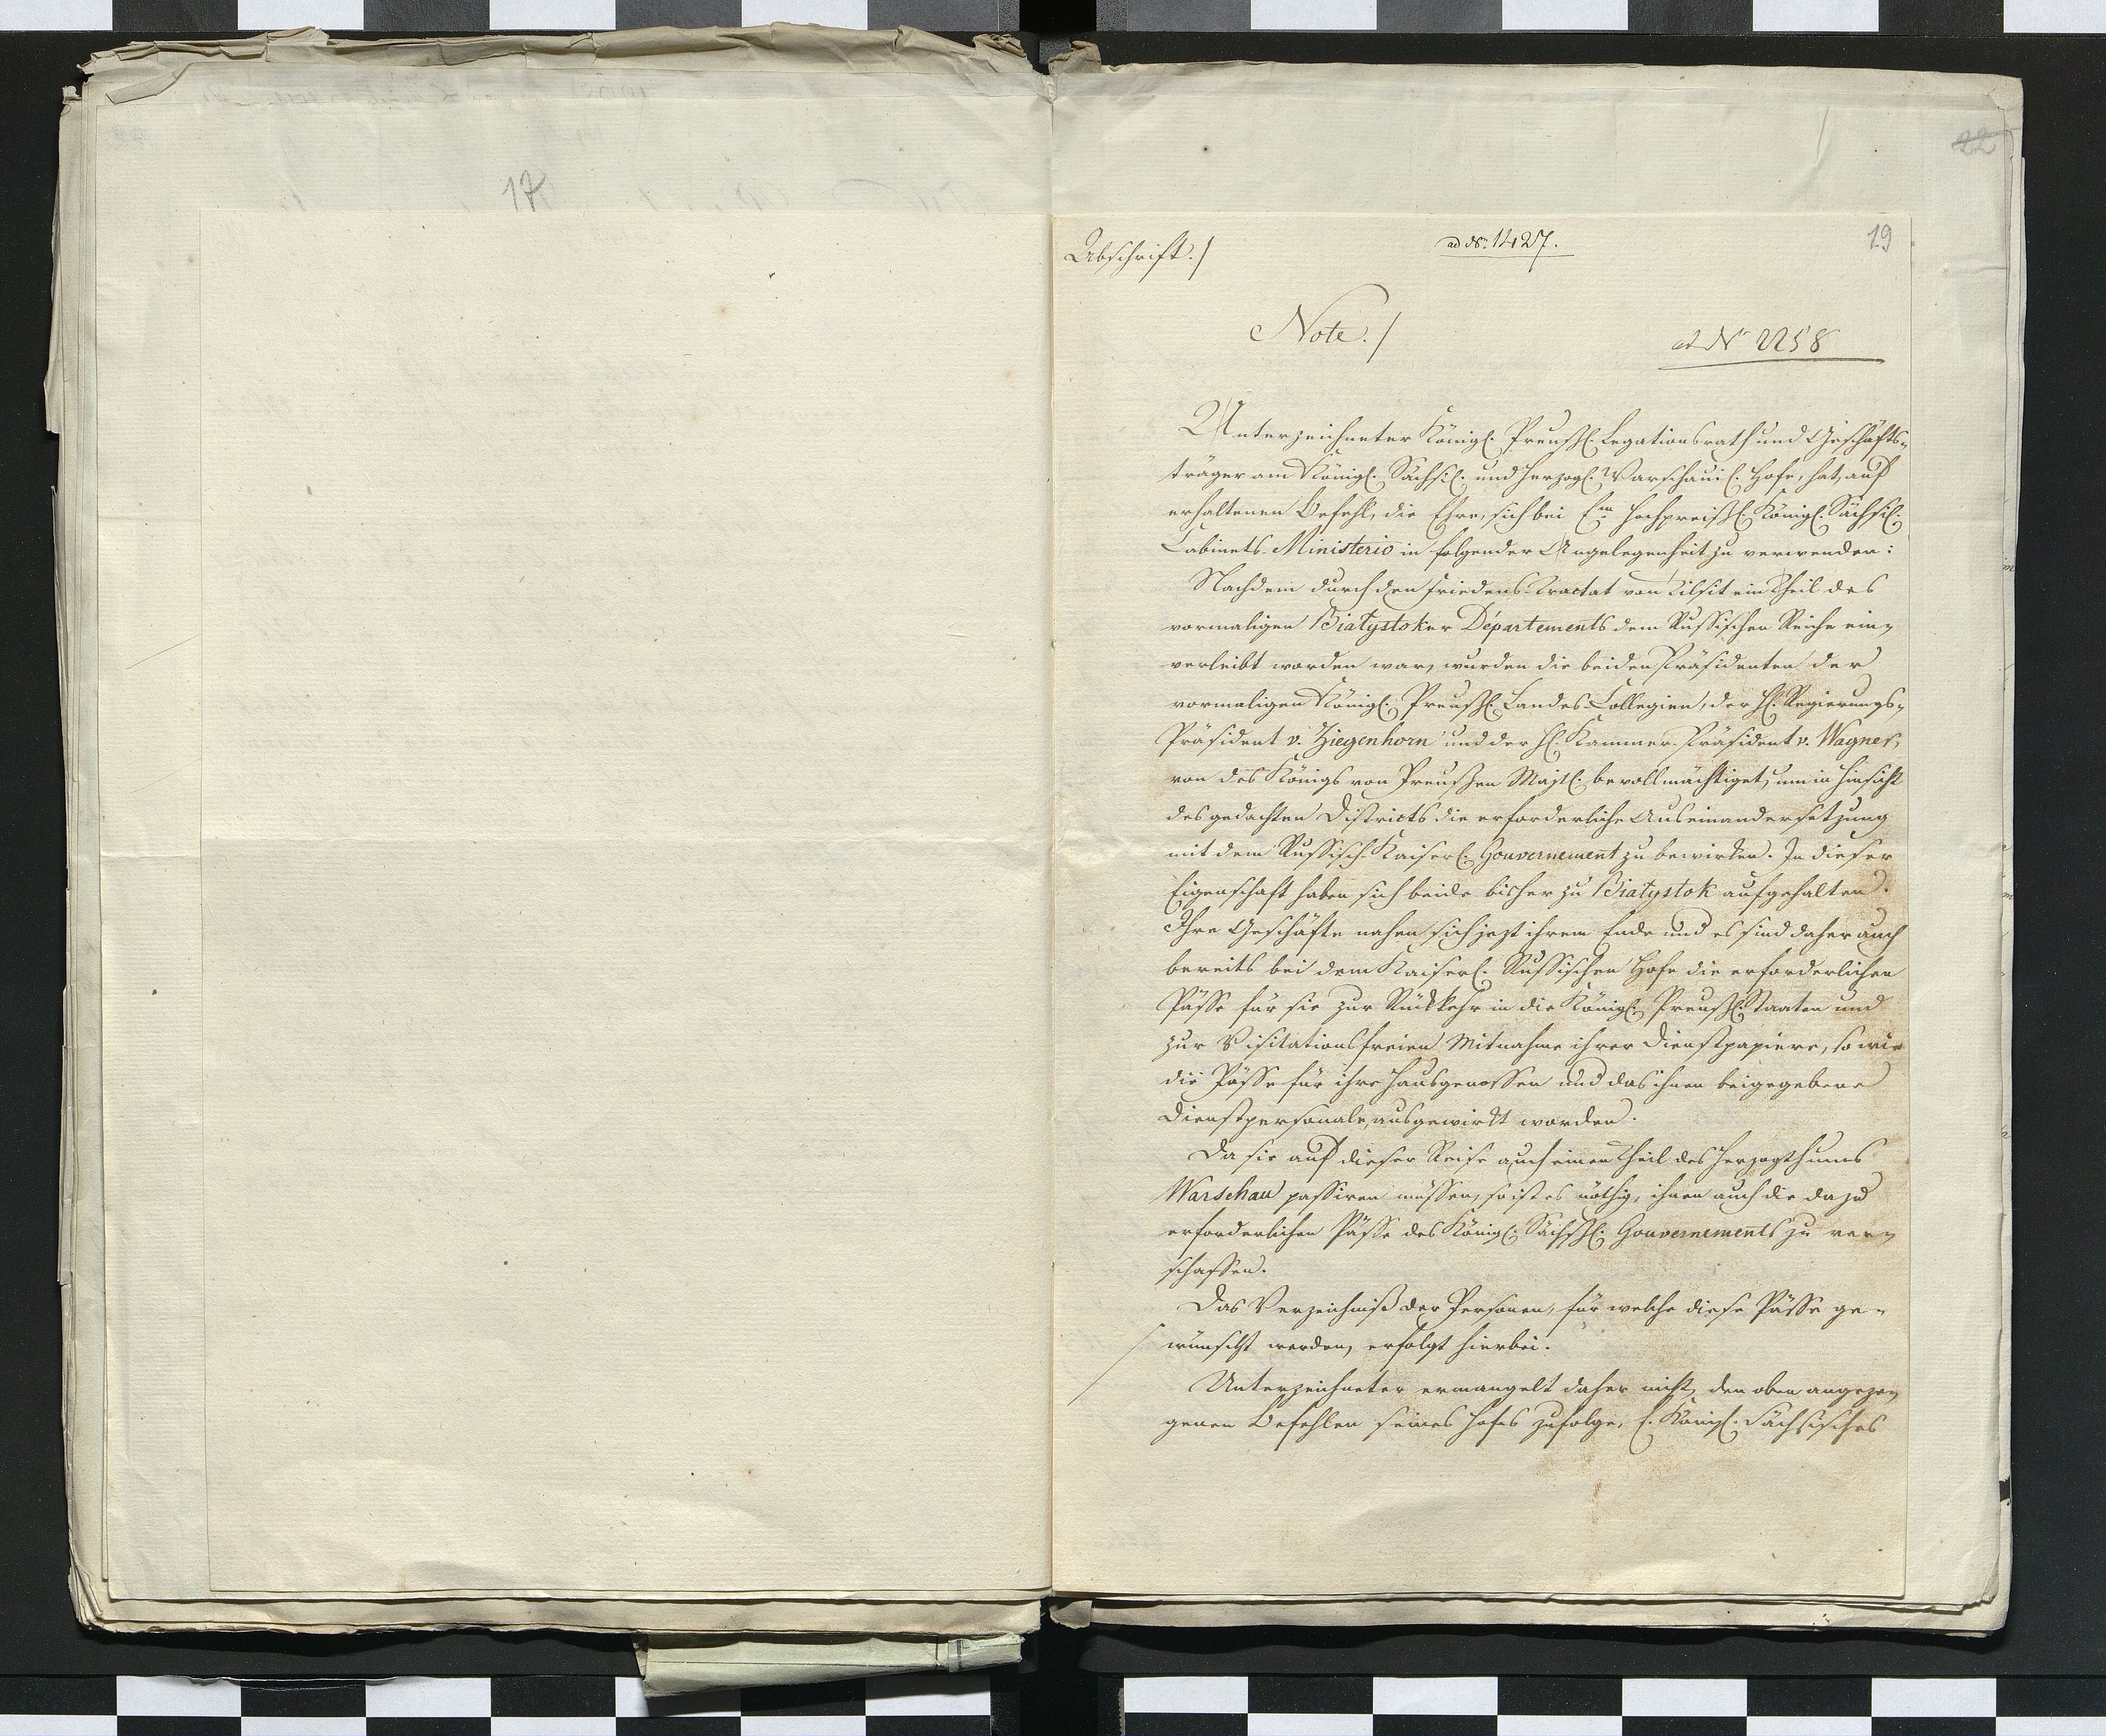 17
22
19
Abschrift./
ad No. 1427.
Note./
ad No 2258
Unterzeichneter Königl. Preußl. Legationsrath und Geschäfts-
träger am Königl. Sächsil. und Herzogl. Warschauil. Hofe, hat, auf
erhaltenen Befehl, die Ehre, sich bei Em Hochpreißl. Königl. Sächsil.
Cabinets-Ministerio in folgender Angelegenheit zu verwenden:
Nachdem durch den Friedens-Tractat von Tilsit ein Theil des
vormaligen Białystoker Départements dem Russischen Reiche ein-
verleibt worden war, wurden die beiden Präsidenten der
vormaligen Königl. Preußl. Landes-Collegien, der H. Regierungs-
Präsident v. Ziegenhorn und der H. Kammer-Präsident v. Wagner,
von des Königs von Preußen Majt. bevollmächtiget, um in Hinsicht
des gedachten Districts die erforderliche Auseinandersetzung
mit dem Russisch-Kaiserl. Gouvernement zu bewirken. In dieser
Eigenschaft haben sich beide bisher zu Białystok aufgehalten.
Ihre Geschäfte nahen sich jezt ihrem Ende und es sind daher auch
bereits bei dem Kaiserl. Russischen Hofe die erforderlichen
Pässe für sie zur Rückkehr in die Königl. Preußl. Staaten und
zur Visitationsfreien Mitnahme ihrer Dienstpapiere, so wie
die Pässe für ihre Hausgenossen und das ihnen beigegebene
Dienstpersonale, ausgewirkt worden.
Da sie auf dieser Reise auch einen Theil des Herzogthums
Warschau passiren müssen, so ist es nöthig, ihnen auch die dazu
erforderlichen Pässe des Königl. Sächßl. Gouvernements zu ver-
schaffen.
Das Verzeichniß der Personen, für welche diese Pässe ge-
wünscht werden, erfolgt hierbei.
Unterzeichneter ermangelt daher nicht, den oben angezo-
genen Befehlen seines Hofes zufolge, E. Königl. Sächsisches